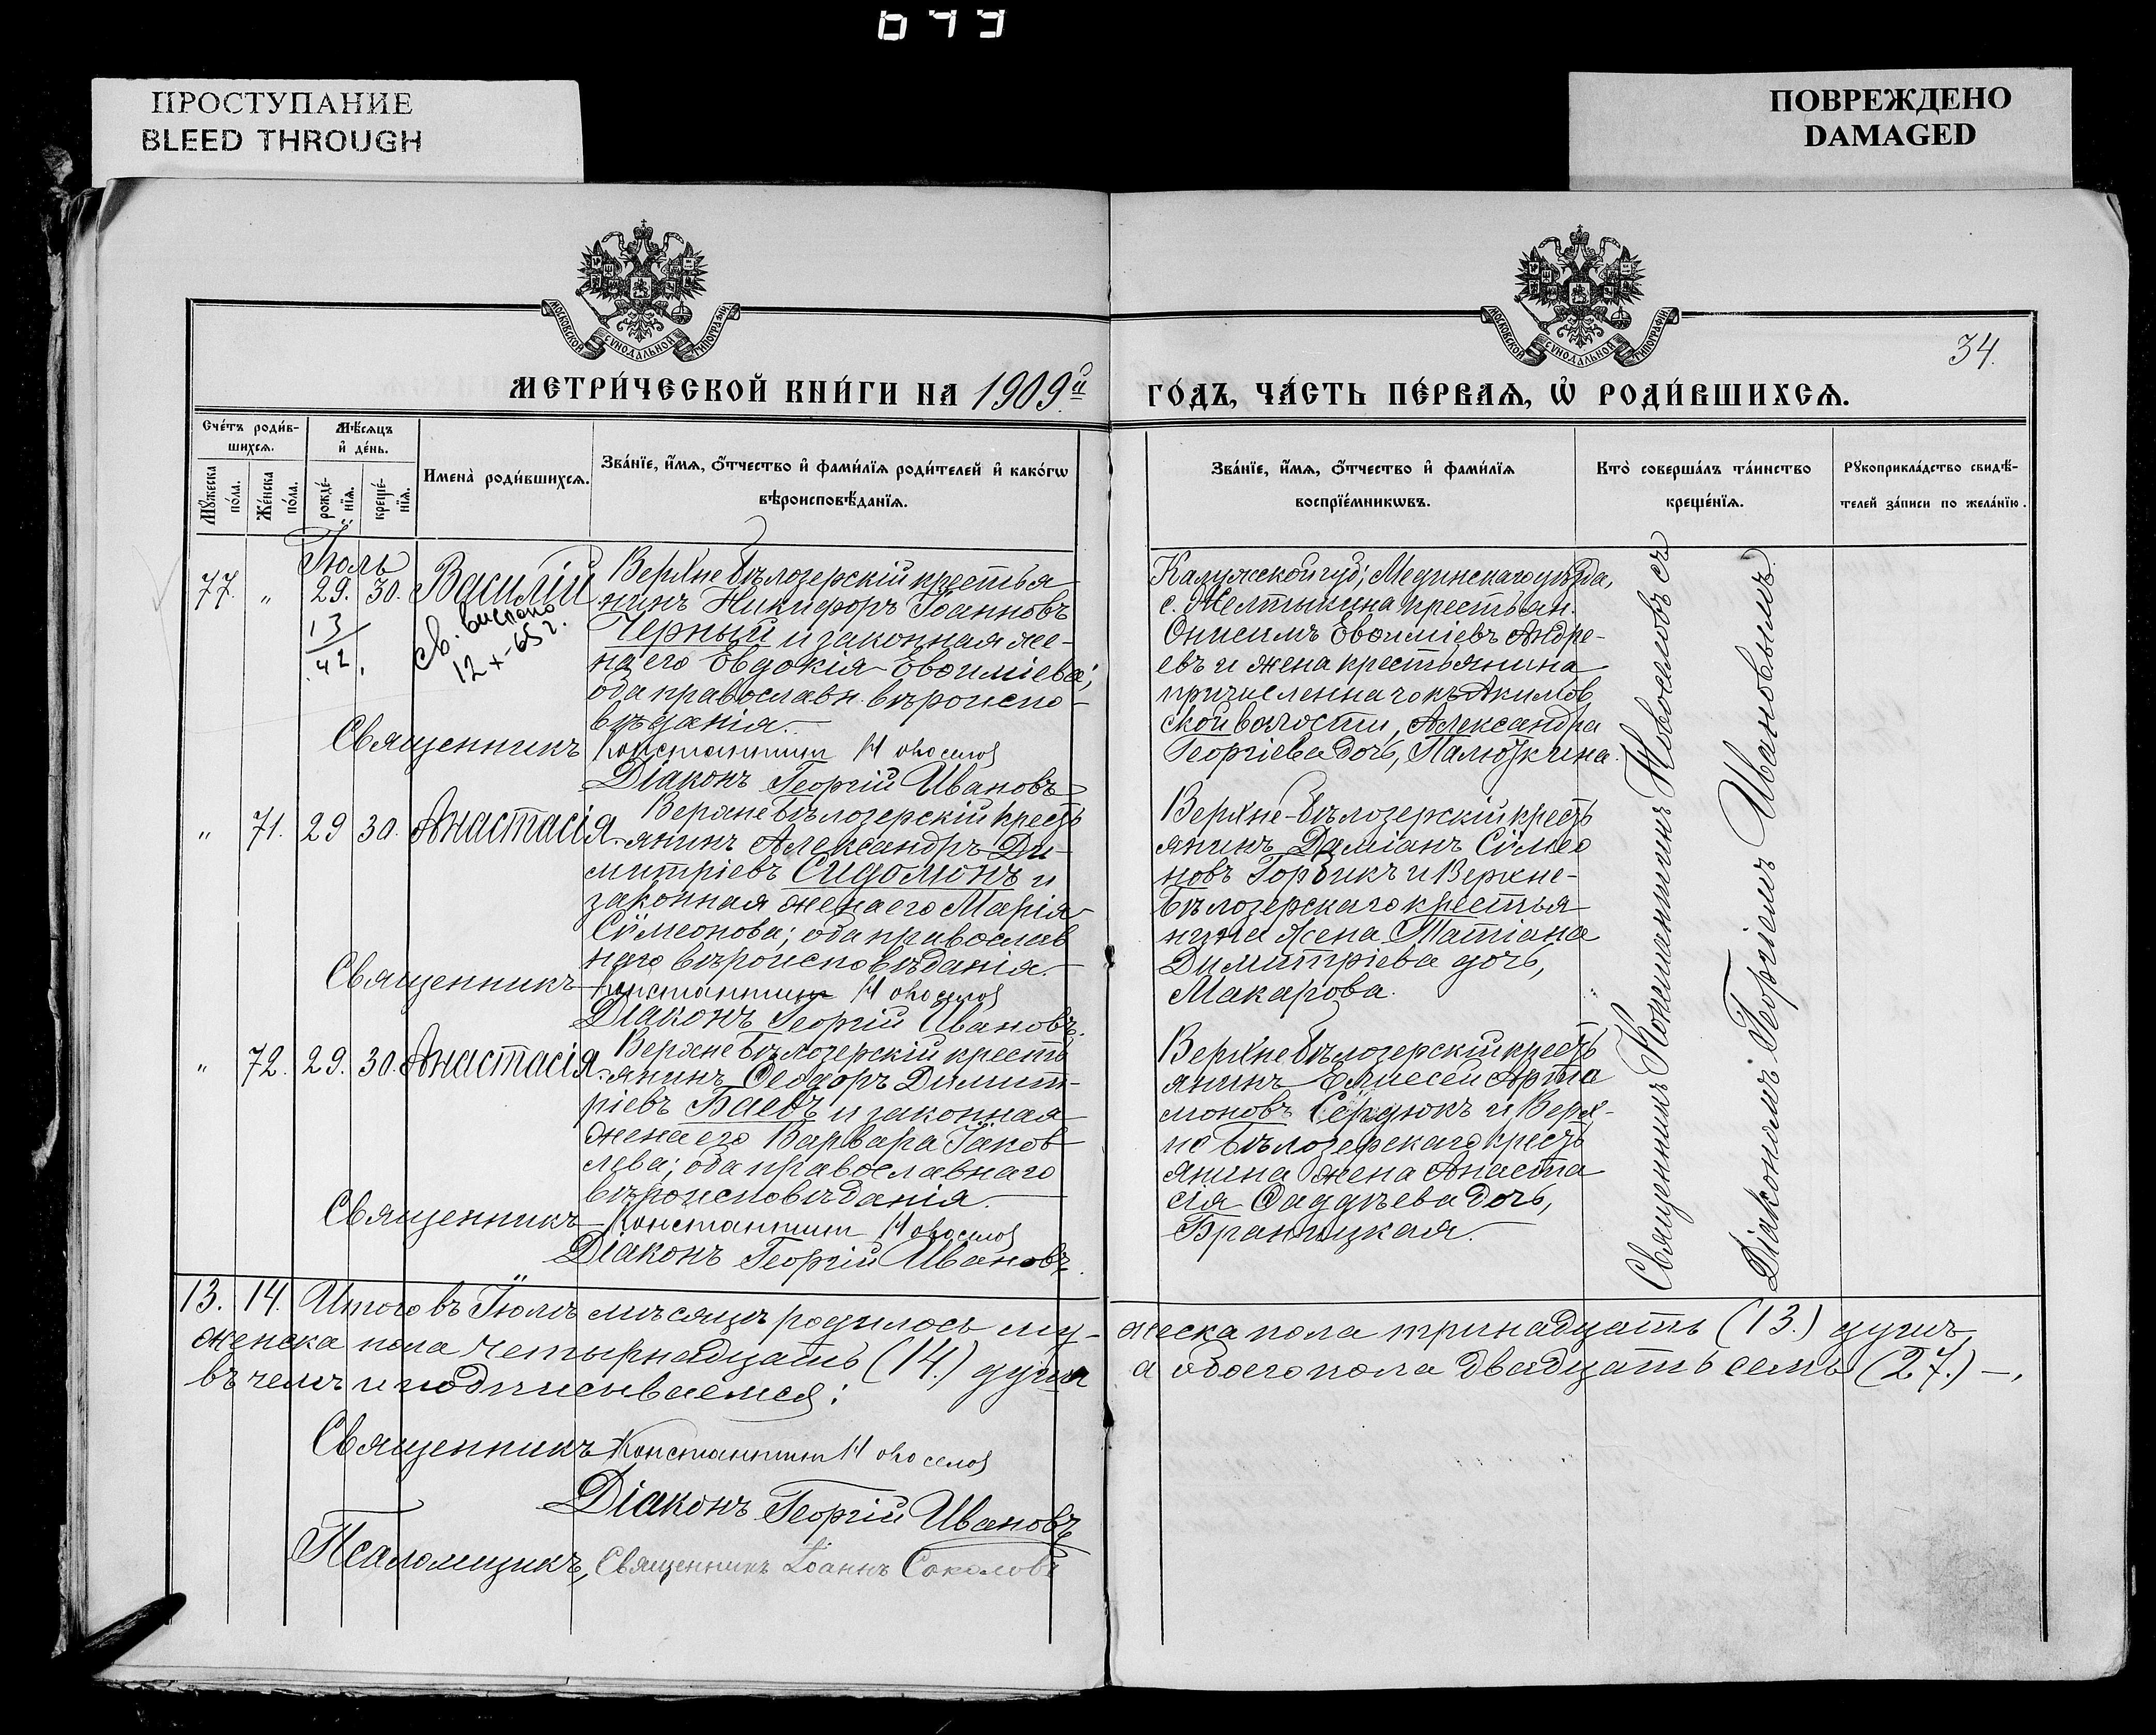 ПРОСТУПАНИЕ
BLEED THROUGH
ПОВРЕЖДЕНО
DAMAGED
МОСКОВСКОЙ СѴНОДАЛЬНОЙ ТИПОГРАФІИ
МОСКОВСКОЙ СѴНОДАЛЬНОЙ ТИПОГРАФІИ
34.
МЕТРИ́ЧЕСКОЙ КНИ́ГИ НА 1909й
ГО́ДЪ, ЧА́СТЬ ПЕ́РВАЯ, Ѡ РОДИ́ВШИХСЯ.
Сче́тъ роди́в-
шихся.
Мѣ́сяцъ
и҆ де́нь.
Мꙋ́жеска по́ла.
Же́нска по́ла.
рожде́-
нїя.
креще́-
нїя.
Имена̀ роди́вшихся.
Зва́нїе, и҆́мя, ѻ҆́тчество и҆ фами́лїя роди́телей и҆ како́гѡ
вѣроисповѣ́данїя.
Зва́нїе, и҆́мя, ѻ҆́тчество и҆ фами́лїя
воспрїе́мникѡвъ.
Кто̀ соверша́лъ та́инство
креще́нїя.
Рꙋкоприкла́дство свидѣ́-
телей за́писи по жела́нїю.
Іюль
77. „ 29. 30. Василій
13/42.
св. выслано
12 х-65 г.
Верхнебѣлозерскій крестья
нинъ Никифоръ Іоанновъ
Черный и законная же-
на его Евдокія Евѳиміева;
оба православн. вѣроиспо-
вѣданія.
Священникъ Константинъ Новоселов
Діаконъ Георгій Ивановъ
Калужской губ., Медынскаго уѣзда,
с. Желтыкина крестьян.
Онисимъ Евѳиміевъ Андре-
евъ и жена крестьянина
причисленнаго къ Акимов
ской волости, Александра
Георгіева дочь, Палюжкина.
„ 71. 29 30. Анастасія
Верхнебѣлозерскій крестъ
янинъ Александръ Ди-
митріевъ Сидомонъ и
законная жена его Марія
Сѵмеонова; оба православ
наго вѣроисповѣданія.
Священникъ Константинъ Новоселов
Діаконъ Георгій Ивановъ.
Верхне-бѣлозерскій кресть
янинъ Даміанъ Сѵмео
новъ Горбикъ и Верхне-
бѣлозерскаго крестья
нина жена Татіана
Димитріева дочь,
Макарова.
„ 72. 29. 30. Анастасія
Верхнебѣлозерскій кресть
янинъ Ѳеодоръ Димит-
ріевъ Баевъ и законная
жена его Варвара Іаков
лева; оба православнаго
вѣроисповѣданія.
Священникъ Константинъ Новоселов
Діаконъ Георгій Ивановъ.
Верхнебѣлозерскій кресть
янинъ Елисей Арта
моновъ Сердюкъ и Верх-
не Бѣлозерскаго кресть
янина жена Анаста
сія Ѳаддѣева дочь,
Браницкая.
Священникъ Константинъ Новоселовъ съ
Діакономъ Георгіемъ Ивановымъ.
13. 14. Итого въ Іюлѣ мѣсяцѣ родилось му-
жеска пола тринадцать (13.) душъ,
женска пола четырнадцать (14.) душъ
а обоего пола двадцать семь (27.) —,
въ чемъ и подписываемся:
Священникъ Константинъ Новоселов
Діаконъ Георгій Ивановъ
Псаломщикъ, Священникъ Іоаннъ Соколовъ